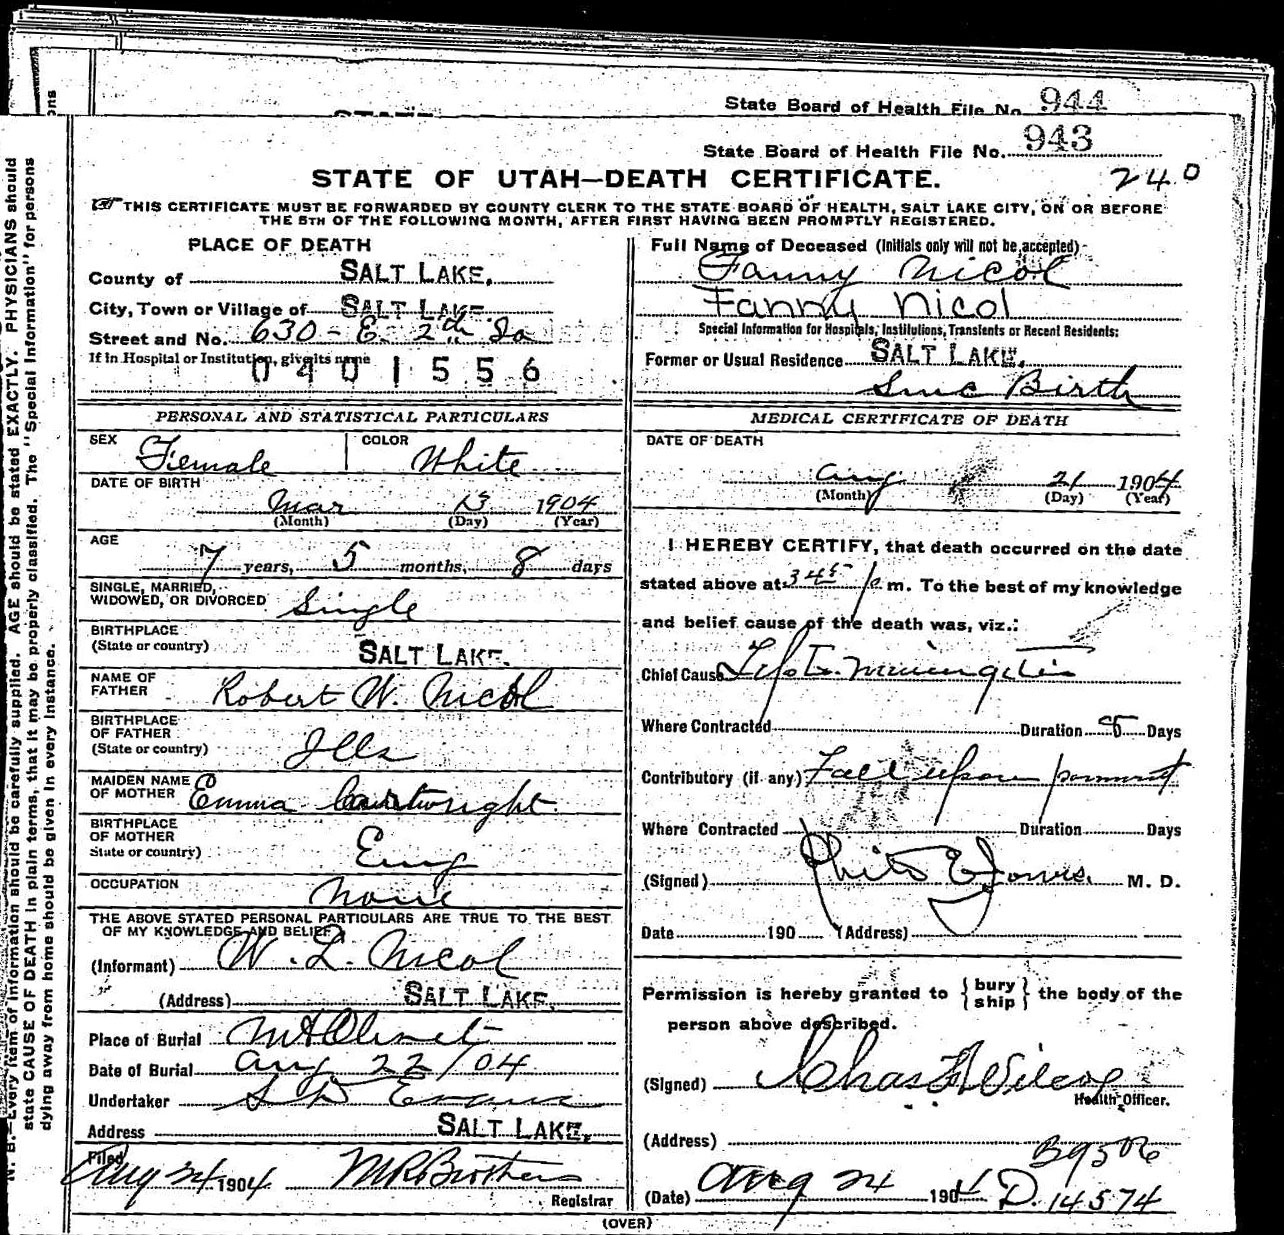 State Board of Health File No. 944
State Board of Health File No. 943
STATE OF UTAH—DEATH CERTIFICATE.
240
THIS CERTIFICATE MUST BE FORWARDED BY COUNTY CLERK TO THE STATE BOARD OF HEALTH, SALT LAKE CITY, ON OR BEFORE
THE 5TH OF THE FOLLOWING MONTH, AFTER FIRST HAVING BEEN PROMPTLY REGISTERED.
PLACE OF DEATH
County of SALT LAKE.
City, Town or Village of SALT LAKE
Street and No. 630 - E. 2nd So
If in Hospital or Institution, give its name
0401556
PERSONAL AND STATISTICAL PARTICULARS
SEX Female COLOR White
DATE OF BIRTH
Mar 13 1904
(Month) (Day) (Year)
AGE
7 years, 5 months, 8 days
SINGLE, MARRIED,
WIDOWED, OR DIVORCED Single
BIRTHPLACE
(State or country) SALT LAKE.
NAME OF
FATHER Robert W. Nicol
BIRTHPLACE
OF FATHER
(State or country) Ills
MAIDEN NAME
OF MOTHER Emma Cartwright
BIRTHPLACE
OF MOTHER
State or country) Eng
OCCUPATION None
THE ABOVE STATED PERSONAL PARTICULARS ARE TRUE TO THE BEST
OF MY KNOWLEDGE AND BELIEF
(Informant) W. L. Nicol
(Address) SALT LAKE.
Place of Burial Mt Olivet
Date of Burial Aug 22/04
Undertaker S D Evans
Address SALT LAKE.
Filed
Aug 24 1904 M R Brothers
Registrar
Full Name of Deceased (Initials only will not be accepted)
Fanny Nicol
Fanny Nicol
Special Information for Hospitals, Institutions, Transients or Recent Residents:
Former or Usual Residence SALT LAKE.
Since Birth
MEDICAL CERTIFICATE OF DEATH
DATE OF DEATH
Aug 21 1904
(Month) (Day) (Year)
I HEREBY CERTIFY, that death occurred on the date
stated above at 3 45 p. m. To the best of my knowledge
and belief cause of the death was, viz.:
Chief Cause meningitis
Where Contracted Duration 5 Days
Contributory (if any) Fall upon
Where Contracted Duration Days
(Signed) Jones. M. D.
Date 190 (Address)
Permission is hereby granted to {bury
ship} the body of the
person above described.
(Signed) Chas F Wilcox
Health Officer.
(Address)
B9506
(Date) Aug 24 1904 D. 14574
(OVER)
N. B.—Every item of information should be carefully supplied. AGE should be stated EXACTLY. PHYSICIANS should
state CAUSE OF DEATH in plain terms, that it may be properly classified. The "Special Information" for persons
dying away from home should be given in every instance.